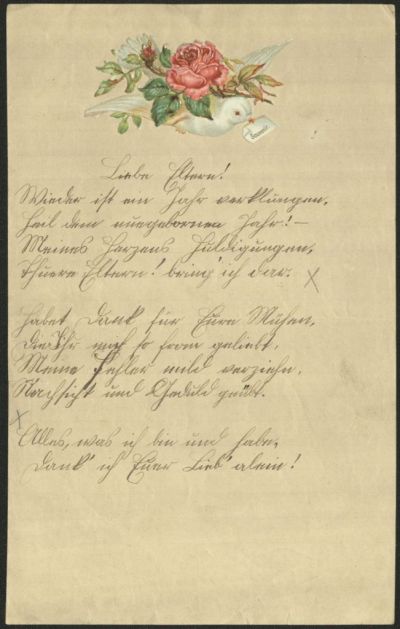 Souvenir
Liebe Eltern!
Wieder ist ein Jahr verklungen,
Heil dem neugebornen Jahr! –
Meines Herzens Huldigungen,
Theuere Eltern! bring' ich dar.
Habet Dank für Eure Mühen,
Die Ihr mich so fromm geliebt,
Meine Fehler mild verziehn,
Nachsicht und Geduld geübt.
Alles, was ich bin und habe,
Dank' ich Euer Lieb' allein!